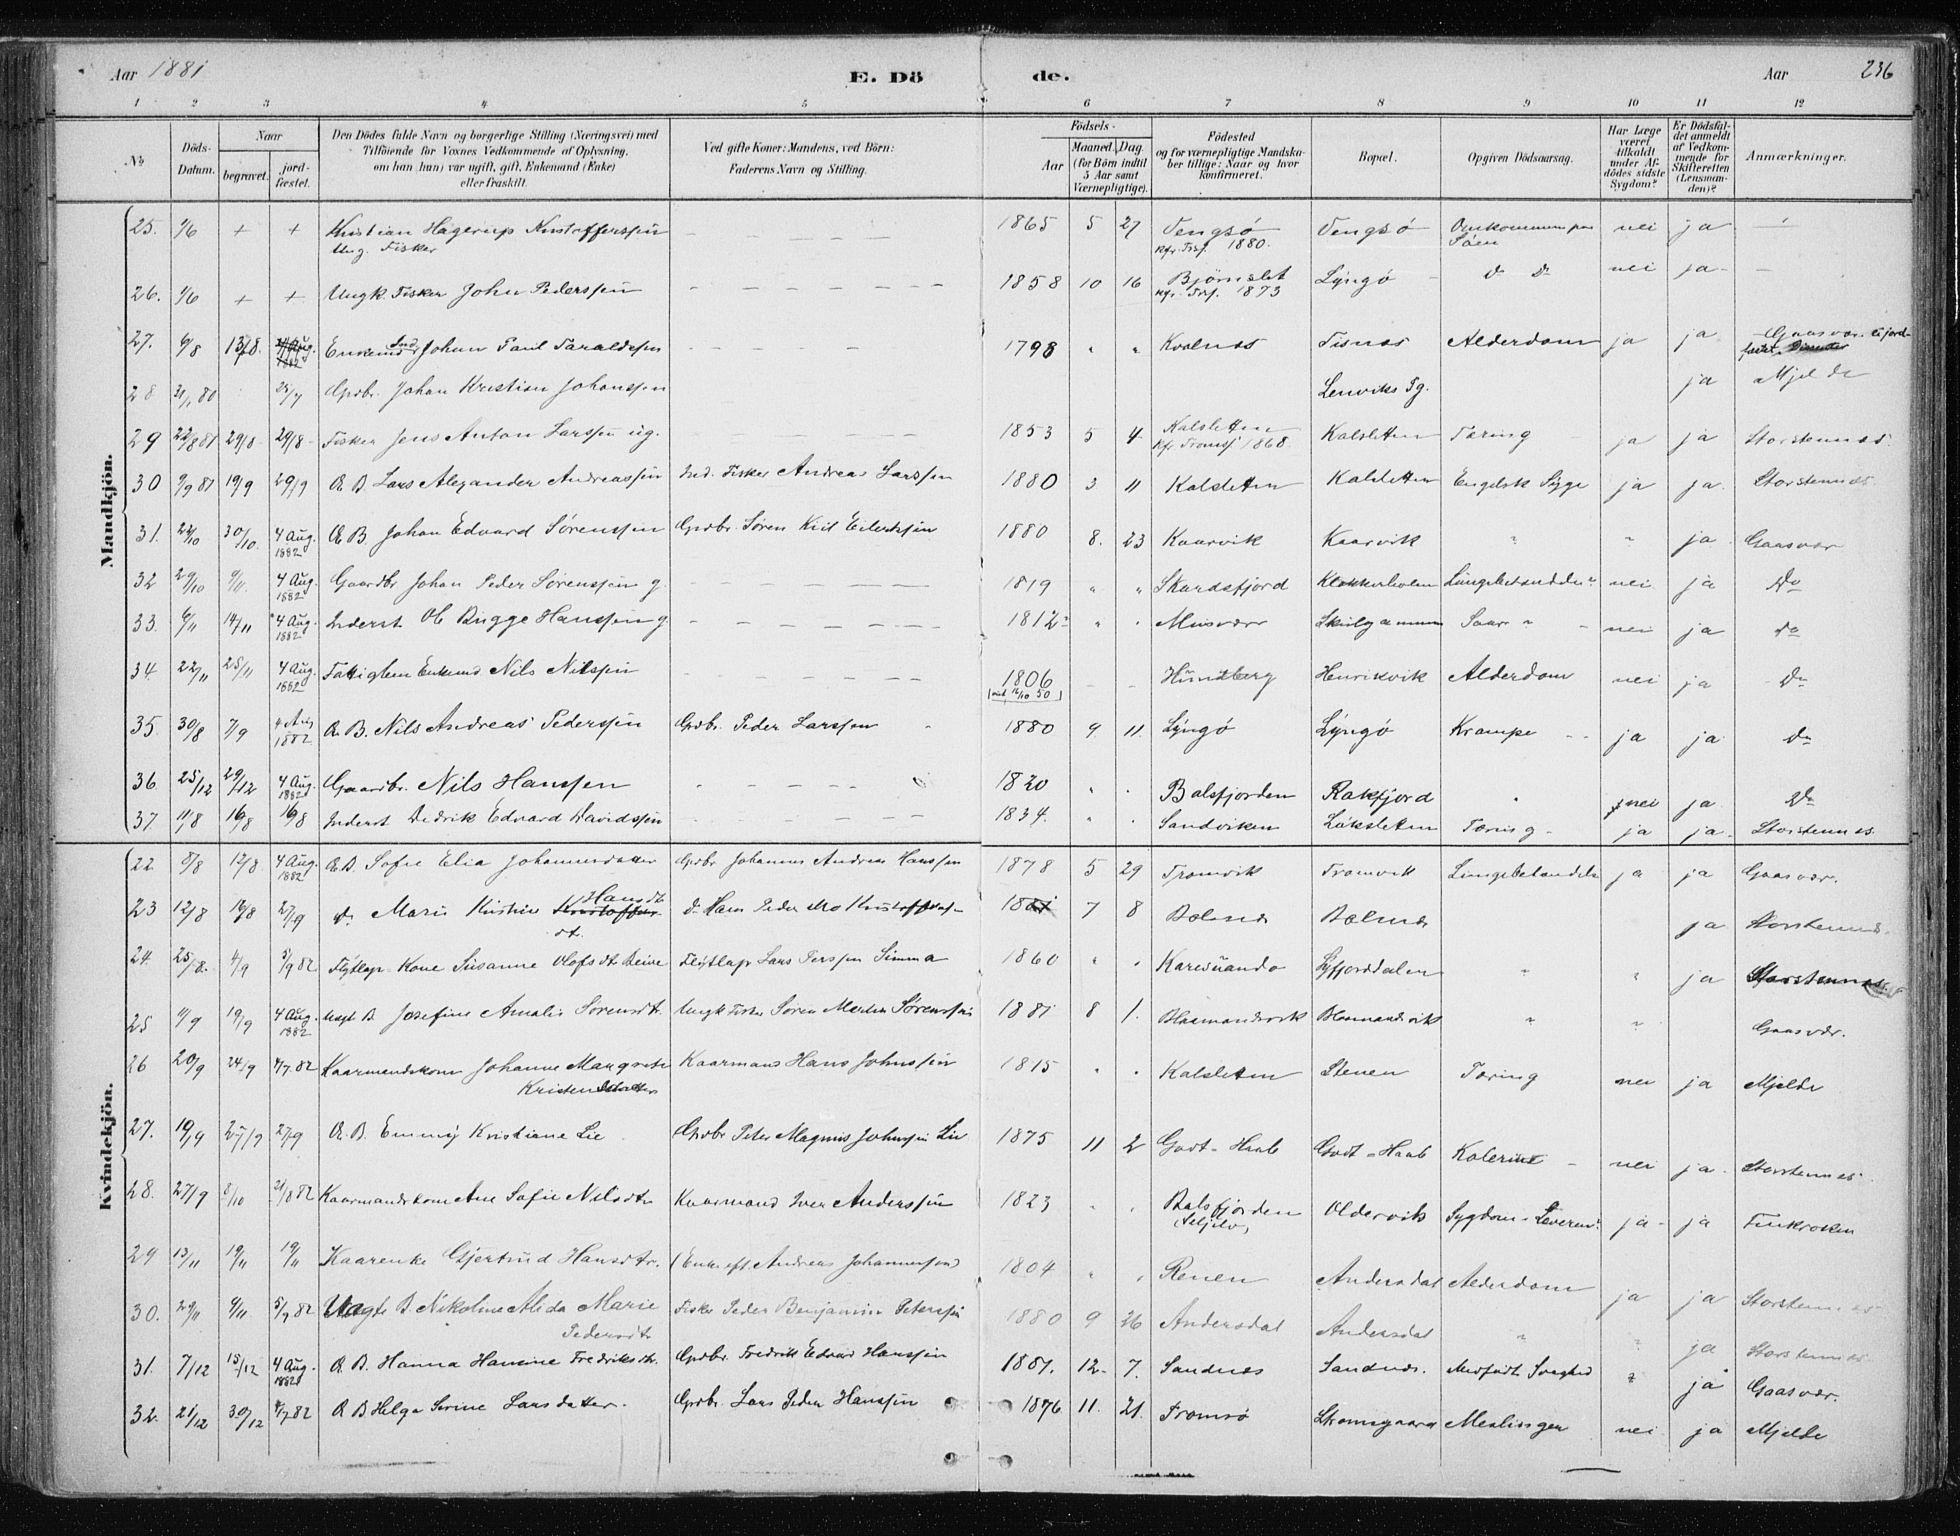 Aar 1881 E. Dö de. Aar 236
1 2 3 4 5 6 7 8 9 10 11 12
No. Döds-Datum. Naar begravet. jordfæstet. Den Dödes fulde Navn og borgerlige Stilling (Næringsvei) med Tilföiende for Voxnes Vedkommende af Oplysning, om han (hun) var ugift, gift, Enkemand (Enke) eller fraskilt. Ved gifte Koner: Mandens, ved Börn: Faderens Navn og Stilling. Födsels- Aar Maaned. Dag. (for Börn indtil 5 Aar samt Værnepligtige). Födested og for værnepligtige Mandskaber tillige: Naar og hvor konfirmeret. Bopæl. Opgiven Dödsaarsag. Har Læge været tilkaldt under Afdödes sidste Sygdom? Er Dödsfaldet anmeldt af Vedkommende for Skifteretten (Lensmanden)? Anmærkninger.
Mandkjön.
25. 1/6 + + Kristian Hagerup Kristofferssen Ung. Fisker 1865 5 27 Vengsö 1880. Vengsö Omkommen paa Söen nei ja
26. 1/6 + + Ungk. Fisker John Pederssen 1858 10 16 Björnslet 1873 Lyngö Do Do nei ja
27. 6/8 13/8. Enkemd Johan Paul Taraldssen 1798 " " Kvalnæs Tisnæs Alderdom ja ja Gaasvær
28 80 Grdbr. Johan Kristian Johanssen Lenviks Pg. ja Mjelde
29 22/8 81 29/8 29/8 Fisker Jens Anton Larssen ug. 1853 5 4 Kalsletten 1868. Kalsletten Tæring ja ja Storstennæs
30 9/9 81 19/9 29/9 Æ. B. Lars Alexander Andreassen Ind. Fisker Andreas Larssen 1880 3 11 Kalsletten Kalsletten Engelsk Syge ja ja Storstennæs
31. 24/10 30/10. 4 Aug. 1882 Æ B Johan Edvard Sörenssen Grdbr. Sören Kiil Eilertssen 1880 8. 23 Kaarvik Kaarvik " " ja Gaasvær
32 29/10 4 Aug. 1882 Gaardbr Johan Peder Sörenssen g. 1819 " " Skardsfjord Klokkerholm Lungebetændelse nei ja Do
33. 6/11 14/11 4 Aug. 1882 Inderst Ole Brygge Hanssen g 1812 " " Musvær Saar nei ja do
34 22/11 25/11 4 Aug. 1882 Fattiglem Enkemd Nils Nilssen 1806 Hundberg Henrikvik Alderdom nei ja Do
35. 30/8 7/9 4 Aug 1882 Æ. B. Nils Andreas Pederssen Grdbr. Peder Larssen 1880 9 11. Lyngö Lyngö Krampe ja ja Do
36 25/12 29/12 4 Aug. 1882 Gaardbr. Nils Hanssen 1820 " " Balsfjorden Rakfjord " nei ja Do
37 11/8 16/8 16/8 Inderst Dedrik Edvard Davidssen 1834. " " Sandviken Laksletten Tæring ja ja Storstennes
Kvindekjön.
22. 8/8 12/8 4 Aug. 1882 Æ. B. Sofie Elia Johannesdatter Grdbr Johannes Andreas Hanssen 1878 5 29 Tromvik Tromvik Lungebetændelse ja ja Gaasvær.
23 12/8 16/8 27/9 Do Marie Kristine Hansdtr 7 8 ja
24. 25/8. 4/9 5/9 82 Flytlap Kone Susanne Olofsdtr Flytlap Lars Persen Simma 1860 " " Karesuando " " ja
25 11/9 19/9 4 Aug. 1882 Uægt B. Josefine Amalie Sörensdtr. Ungk Fisker Sören Martin Sörenssen 1881 8 1. Blaamandsvik Blaamandsvik " " Gaasvær.
26 20/9 24/9 7/7 82 Kaarmandskone Johanne Margrete Kristensdatter Kaarmand Hans Johnssen 1815 " " Kalsletten Stenen Tæring nei ja Mjelde
27. 19/9 27/9 27/9 Æ. B. Emmy Kristiane Lie Grdbr Peter Magnus Johnsen Lie 1875 11 2 Godt-Haab Godt-Haab Kolerine nei ja. Storstennes
28. 27/9 8/10 82 Kaarmandskone Ane Sofie Nilsdtr Kaarmand Iver Anderssen 1823 " " Balsfjorden Oldervik Sygdom i Leveren ja ja Finkroken
29 13/11 19/11 19/11 Kaarenke Gjertrud Hansdtr. (Enke eft. Andreas Johannessen) 1804 " " Renen Andersdal Alderdom ja ja Storstennes
30. 29/11 5/9 82 Uægte B. Nikoline Alida Marie Pedersdtr Fisker Peder Benjamin Peterssen 1880 9 26 Andersdal Andersdal " " ja Storstennes
31. 7/12 15/12 4 Aug. 1882 Æ. B. Hanna Hansine Fredriksdtr. Grdbr. Fredrik Edvard Hanssen 1881. 12. 7. Sandnæs Sandnæs. Medfödt Svaghed " ja Gaasvær.
32. 21/12 30/12 7/7 82 Æ B Helga Serine Larsdatter. Grdbr. Lars Peder Hanssen 1876 11. 21. Tromsö Strømsgaard Meslinger nei ja Mjelde